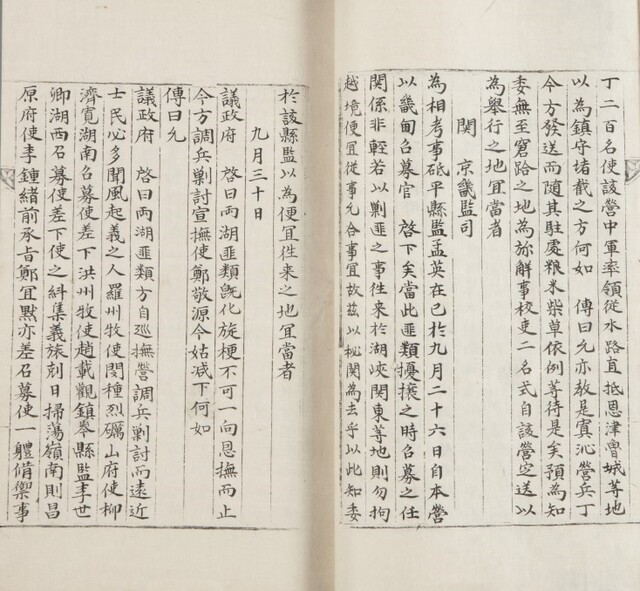 丁二百名使該營中軍率領從水路直抵恩津魯城等地
以為鎮守堵截之方何如　傳曰允亦敎是寘沁營兵丁
今方發送而隨其駐處粮米柴草依例等待是矣預為知
委無至窘路之地為旀解事校吏二名式自該營定送以
為舉行之地宜當者
関　京畿監司
為相考事砥平縣監孟英在已於九月二十六日自本營
以畿甸召募官　啓下矣當此匪類擾攘之時召募之任
関係非輕若以剿匪之事徃来於湖峽関東等地則勿拘
越境便宜從事允合事宜故玆以秘関為去乎以此知委
於該縣監以為便宜徃来之地宜當者
九月三十日
議政府　啓曰両湖匪類旣化旋梗不可一向恩撫而止
今方調兵剿討宣撫使鄭敬源今姑減下何如
傳曰允
議政府　啓曰両湖匪類方自巡撫營調兵剿討而遠近
士民必多聞風起義之人羅州牧使閔種烈礪山府使柳
濟寬湖南召募使差下洪州牧使趙載觀鎮岑縣監李世
卿湖西召募使差下使之糾集義旅刻日掃蕩嶺南則昌
原府使李鍾緒前承旨鄭宜默亦差召募使一軆俻禦事